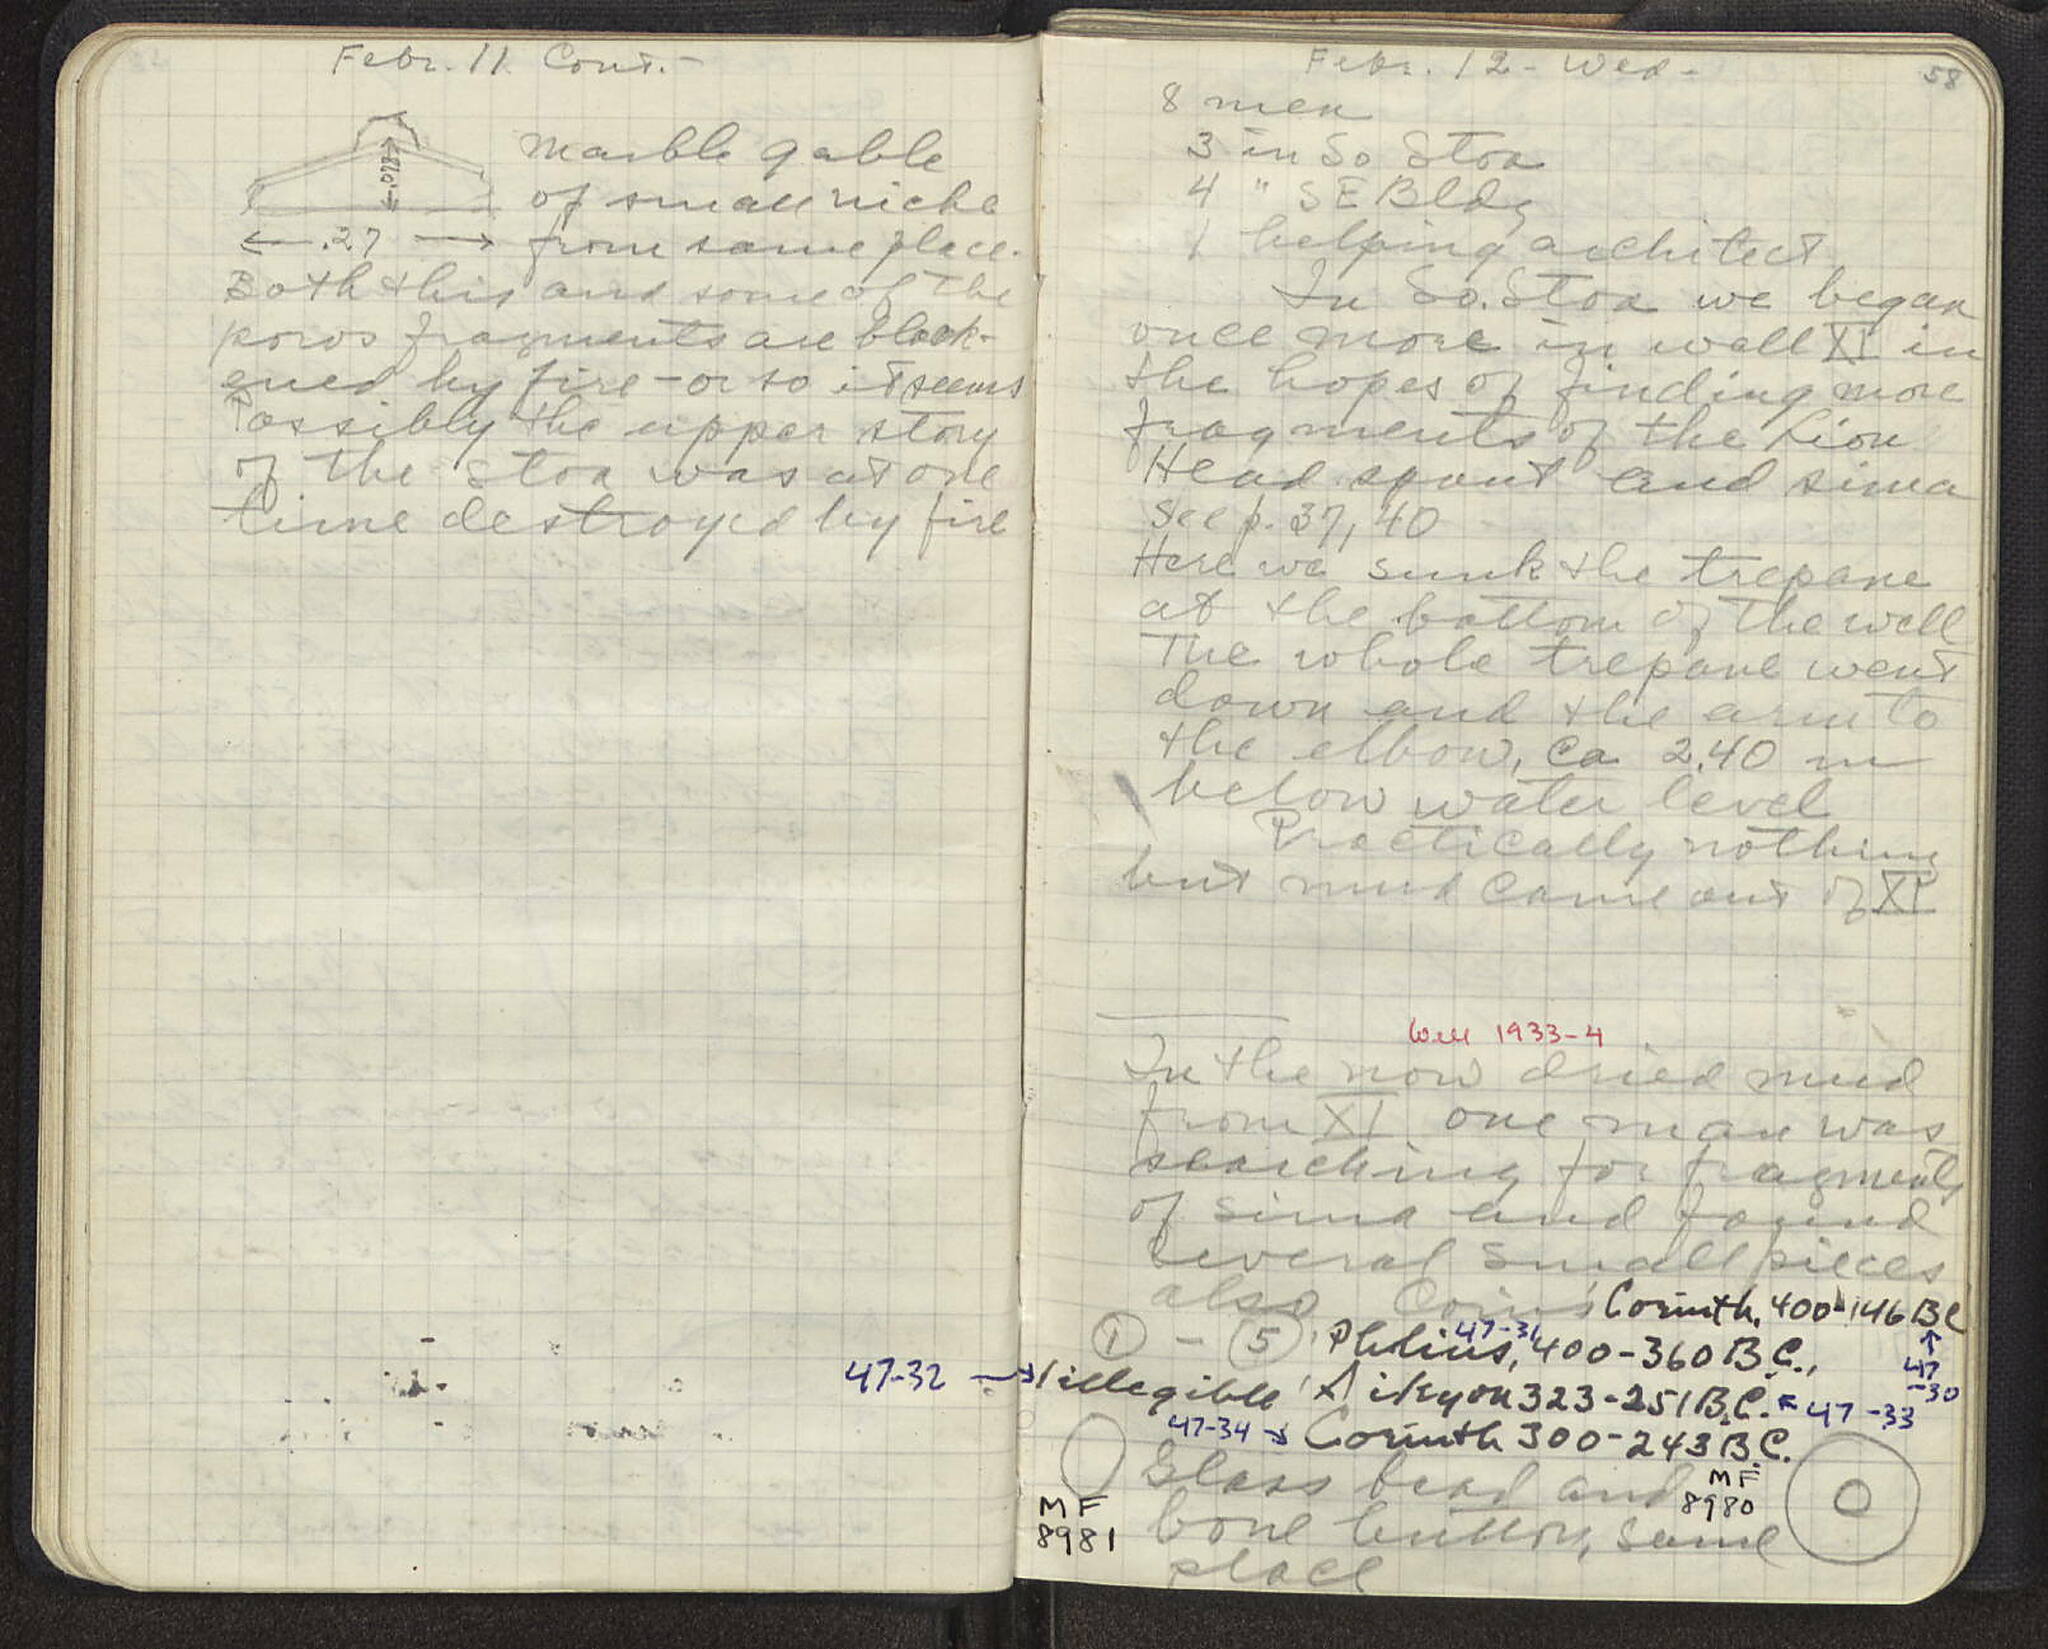 Febr. 11 Cont.-
.078
.27
marble gable
of small niche
from same place.
Both this and some of the
poros fragments are black-
ened by fire - or so it seems
Possibly the upper story
of the Stoa was at one
time destroyed by fire
47-32
58
Febr. 12 - Wed -
8 men
3 in So Stoa
4 " SE Bldg
1 helping architect
In So. Stoa we began
once more in well XI in
the hopes of finding more
fragments of the Lion
Head spout and sima
See p. 37, 40
Here we sunk the trepane
at the bottom of the well
The whole trepane went
down and the arm to
the elbow, ca 2.40 m
below water level
Practically nothing
but mud came out of XI
Well 1933-4
In the now dried mud
from XI one man was
searching for fragments
of sima and found
several small pieces
also Coins Corinth, 400-146 BC
① - ⑤ Phlius, 400-360 B.C.,
47-31
47-30
1 illegible, Sikyon 323-251 B.C. 47-33
47-34 Corinth 300-243 B.C.
Glass bead and MF 8980
MF 8981
bone button, same
place